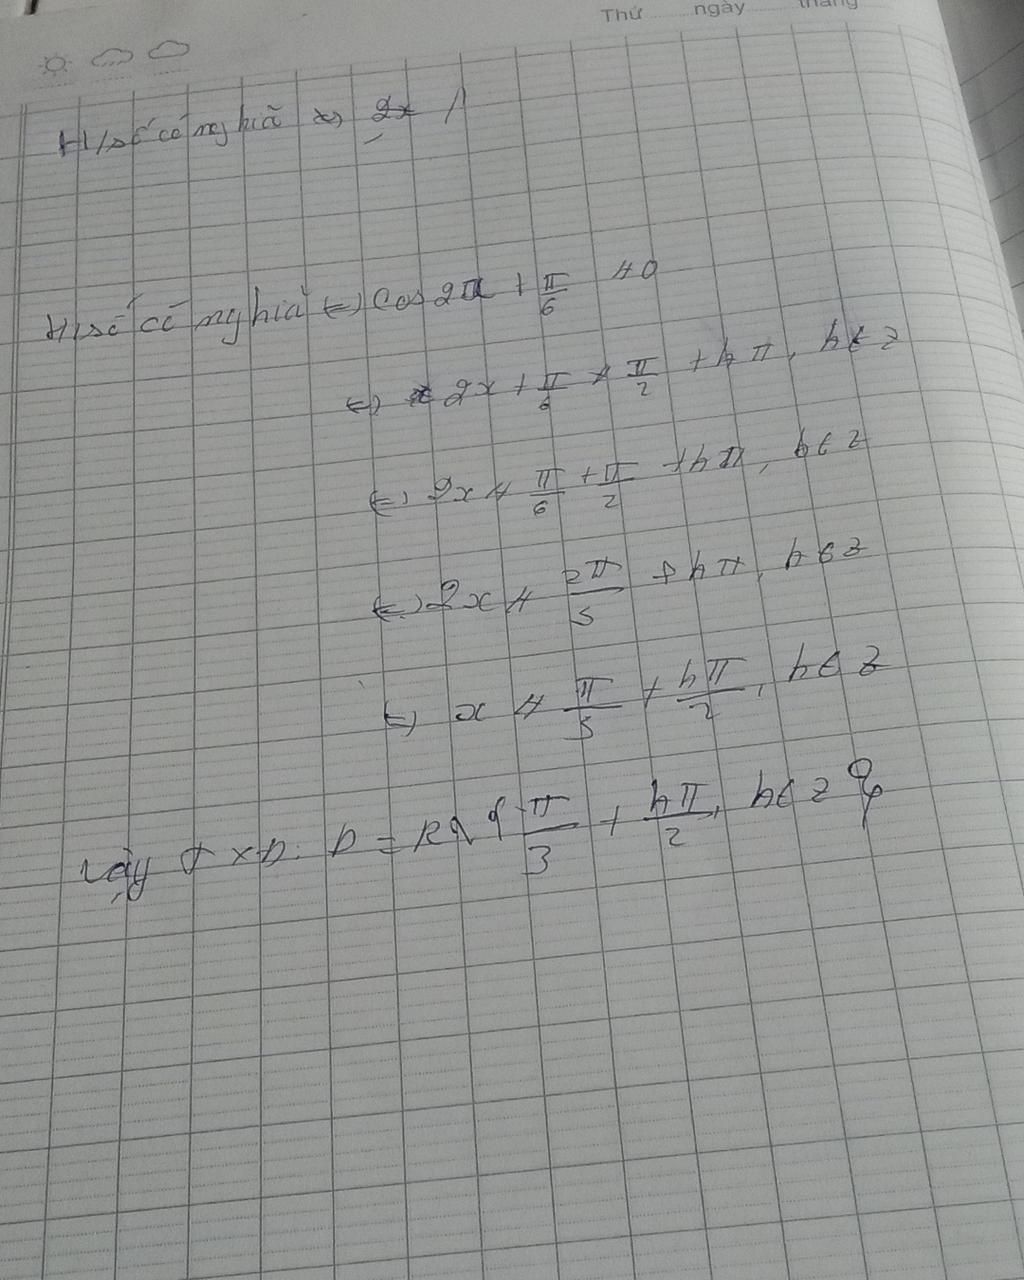 Thứ ngày tháng
H/số có nghĩa <=> 2x ≠
H/số có nghĩa <=> cos 2x + π/6 ≠ 0
<=> 2x + π/6 ≠ π/2 + kπ, k ∈ Z
<=> 2x ≠ π/6 + π/2 + kπ, k ∈ Z
<=> 2x ≠ 2π/3 + kπ, k ∈ Z
<=> x ≠ π/3 + kπ/2, k ∈ Z
Vậy TXD: D = R \ { π/3 + kπ/2, k ∈ Z }